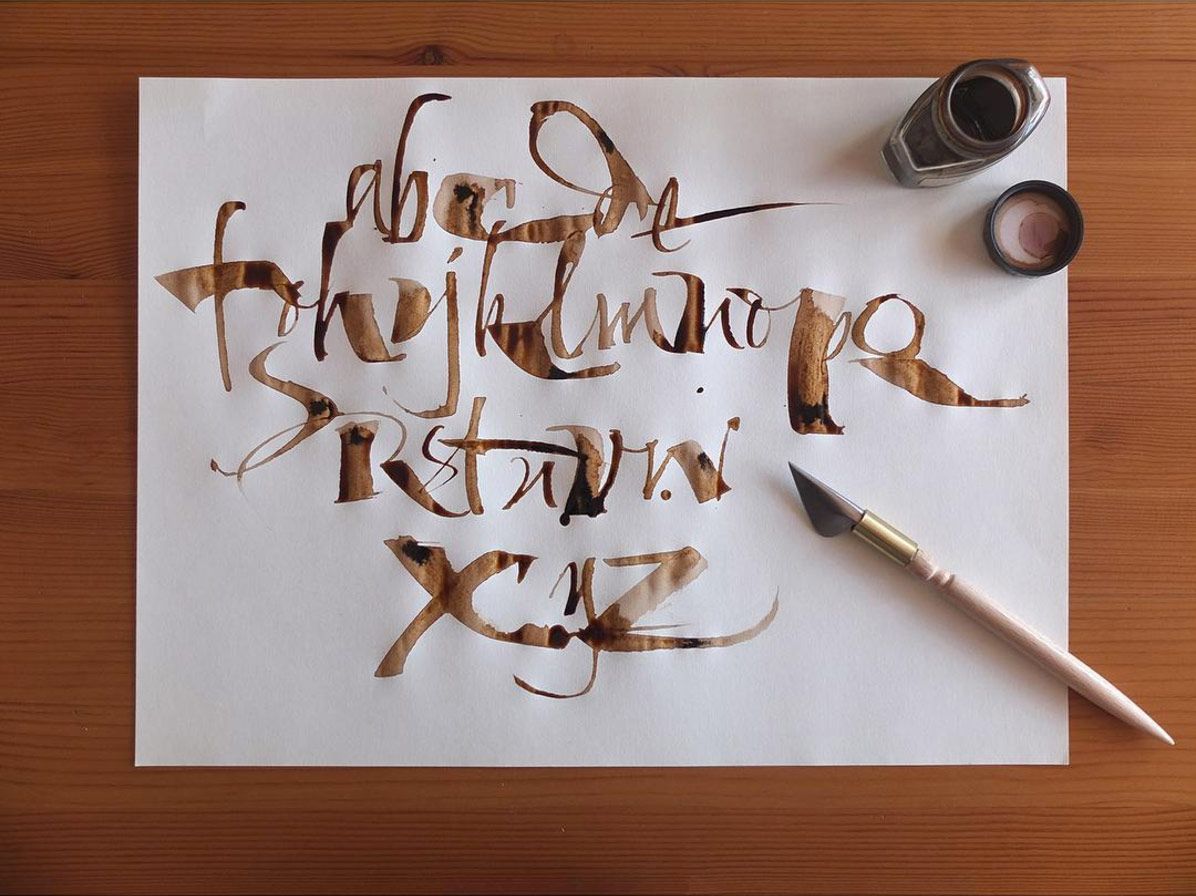 abcde
fghijklmnopq
rstuvw
xyz